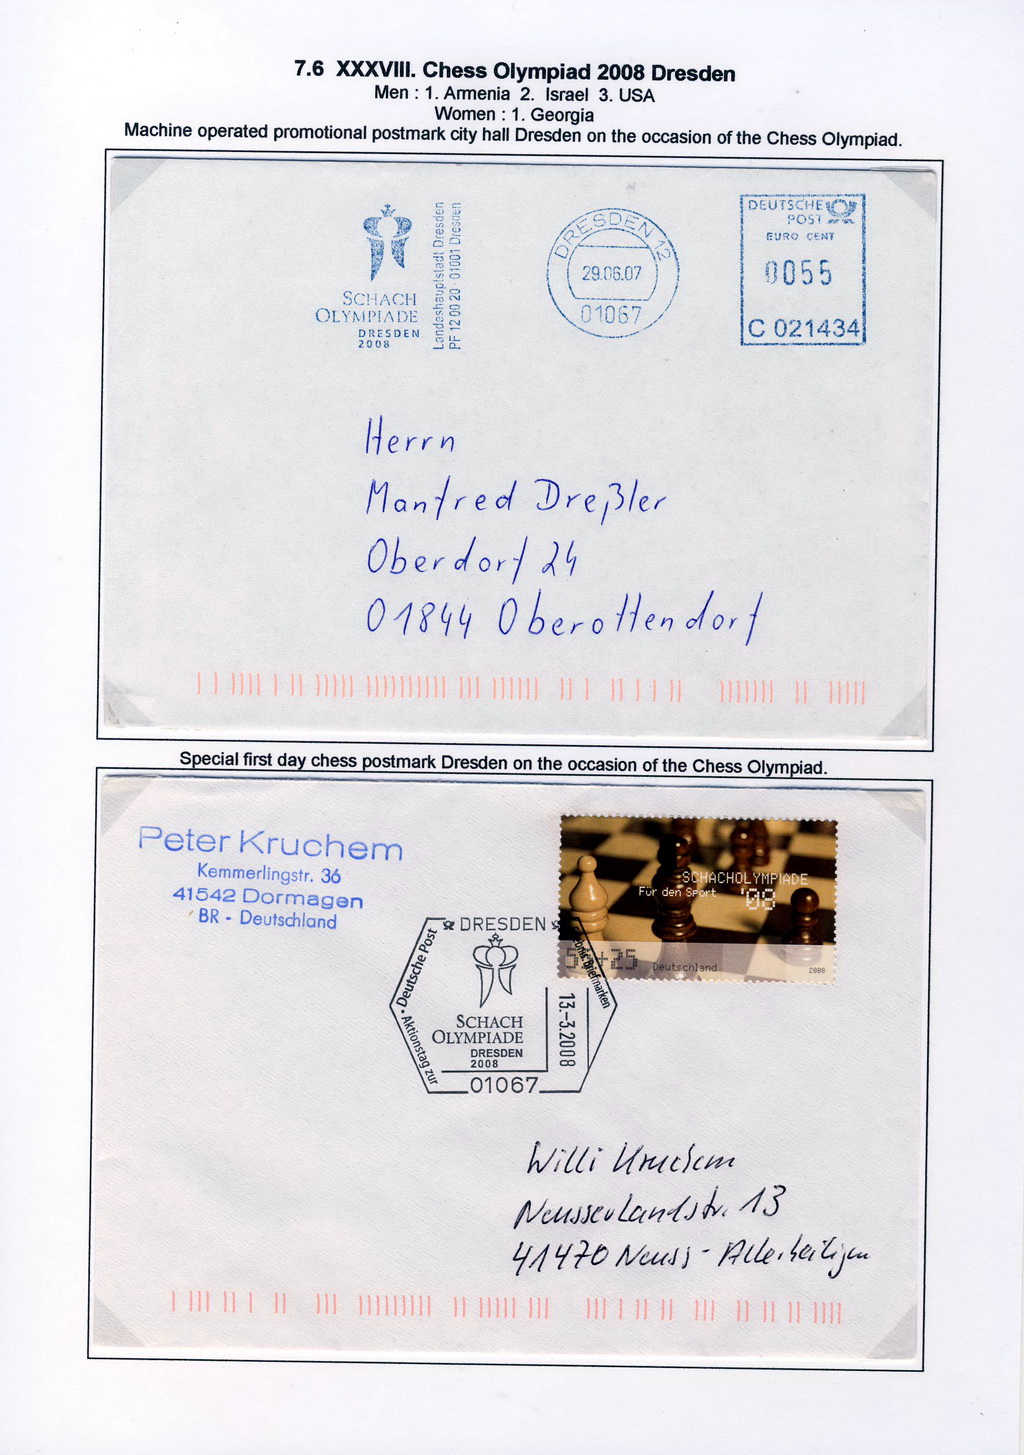 7.6 XXXVIII. Chess Olympiad 2008 Dresden
Men : 1. Armenia 2. Israel 3. USA
Women : 1. Georgia
Machine operated promotional postmark city hall Dresden on the occasion of the Chess Olympiad.
SCHACH
OLYMPIADE
DRESDEN
2008
Landeshauptstadt Dresden
PF 12 00 20 · 01001 Dresden
DRESDEN 12
29.06.07
01067
DEUTSCHE
POST
EURO CENT
0055
C 021434
Herrn
Manfred Dreßler
Oberdorf 24
01844 Oberottendorf
Special first day chess postmark Dresden on the occasion of the Chess Olympiad.
Peter Kruchem
Kemmerlingstr. 36
41542 Dormagen
BR - Deutschland
SCHACHOLYMPIADE
Für den Sport '08
+25 Deutschland 2008
DRESDEN
Deutsche Post
Aktionstag zur
Briefmarken
SCHACH
OLYMPIADE
DRESDEN
2008
13.-3.2008
01067
Willi Kruchem
Neusser Landstr. 13
41470 Neuss - Allerheiligen